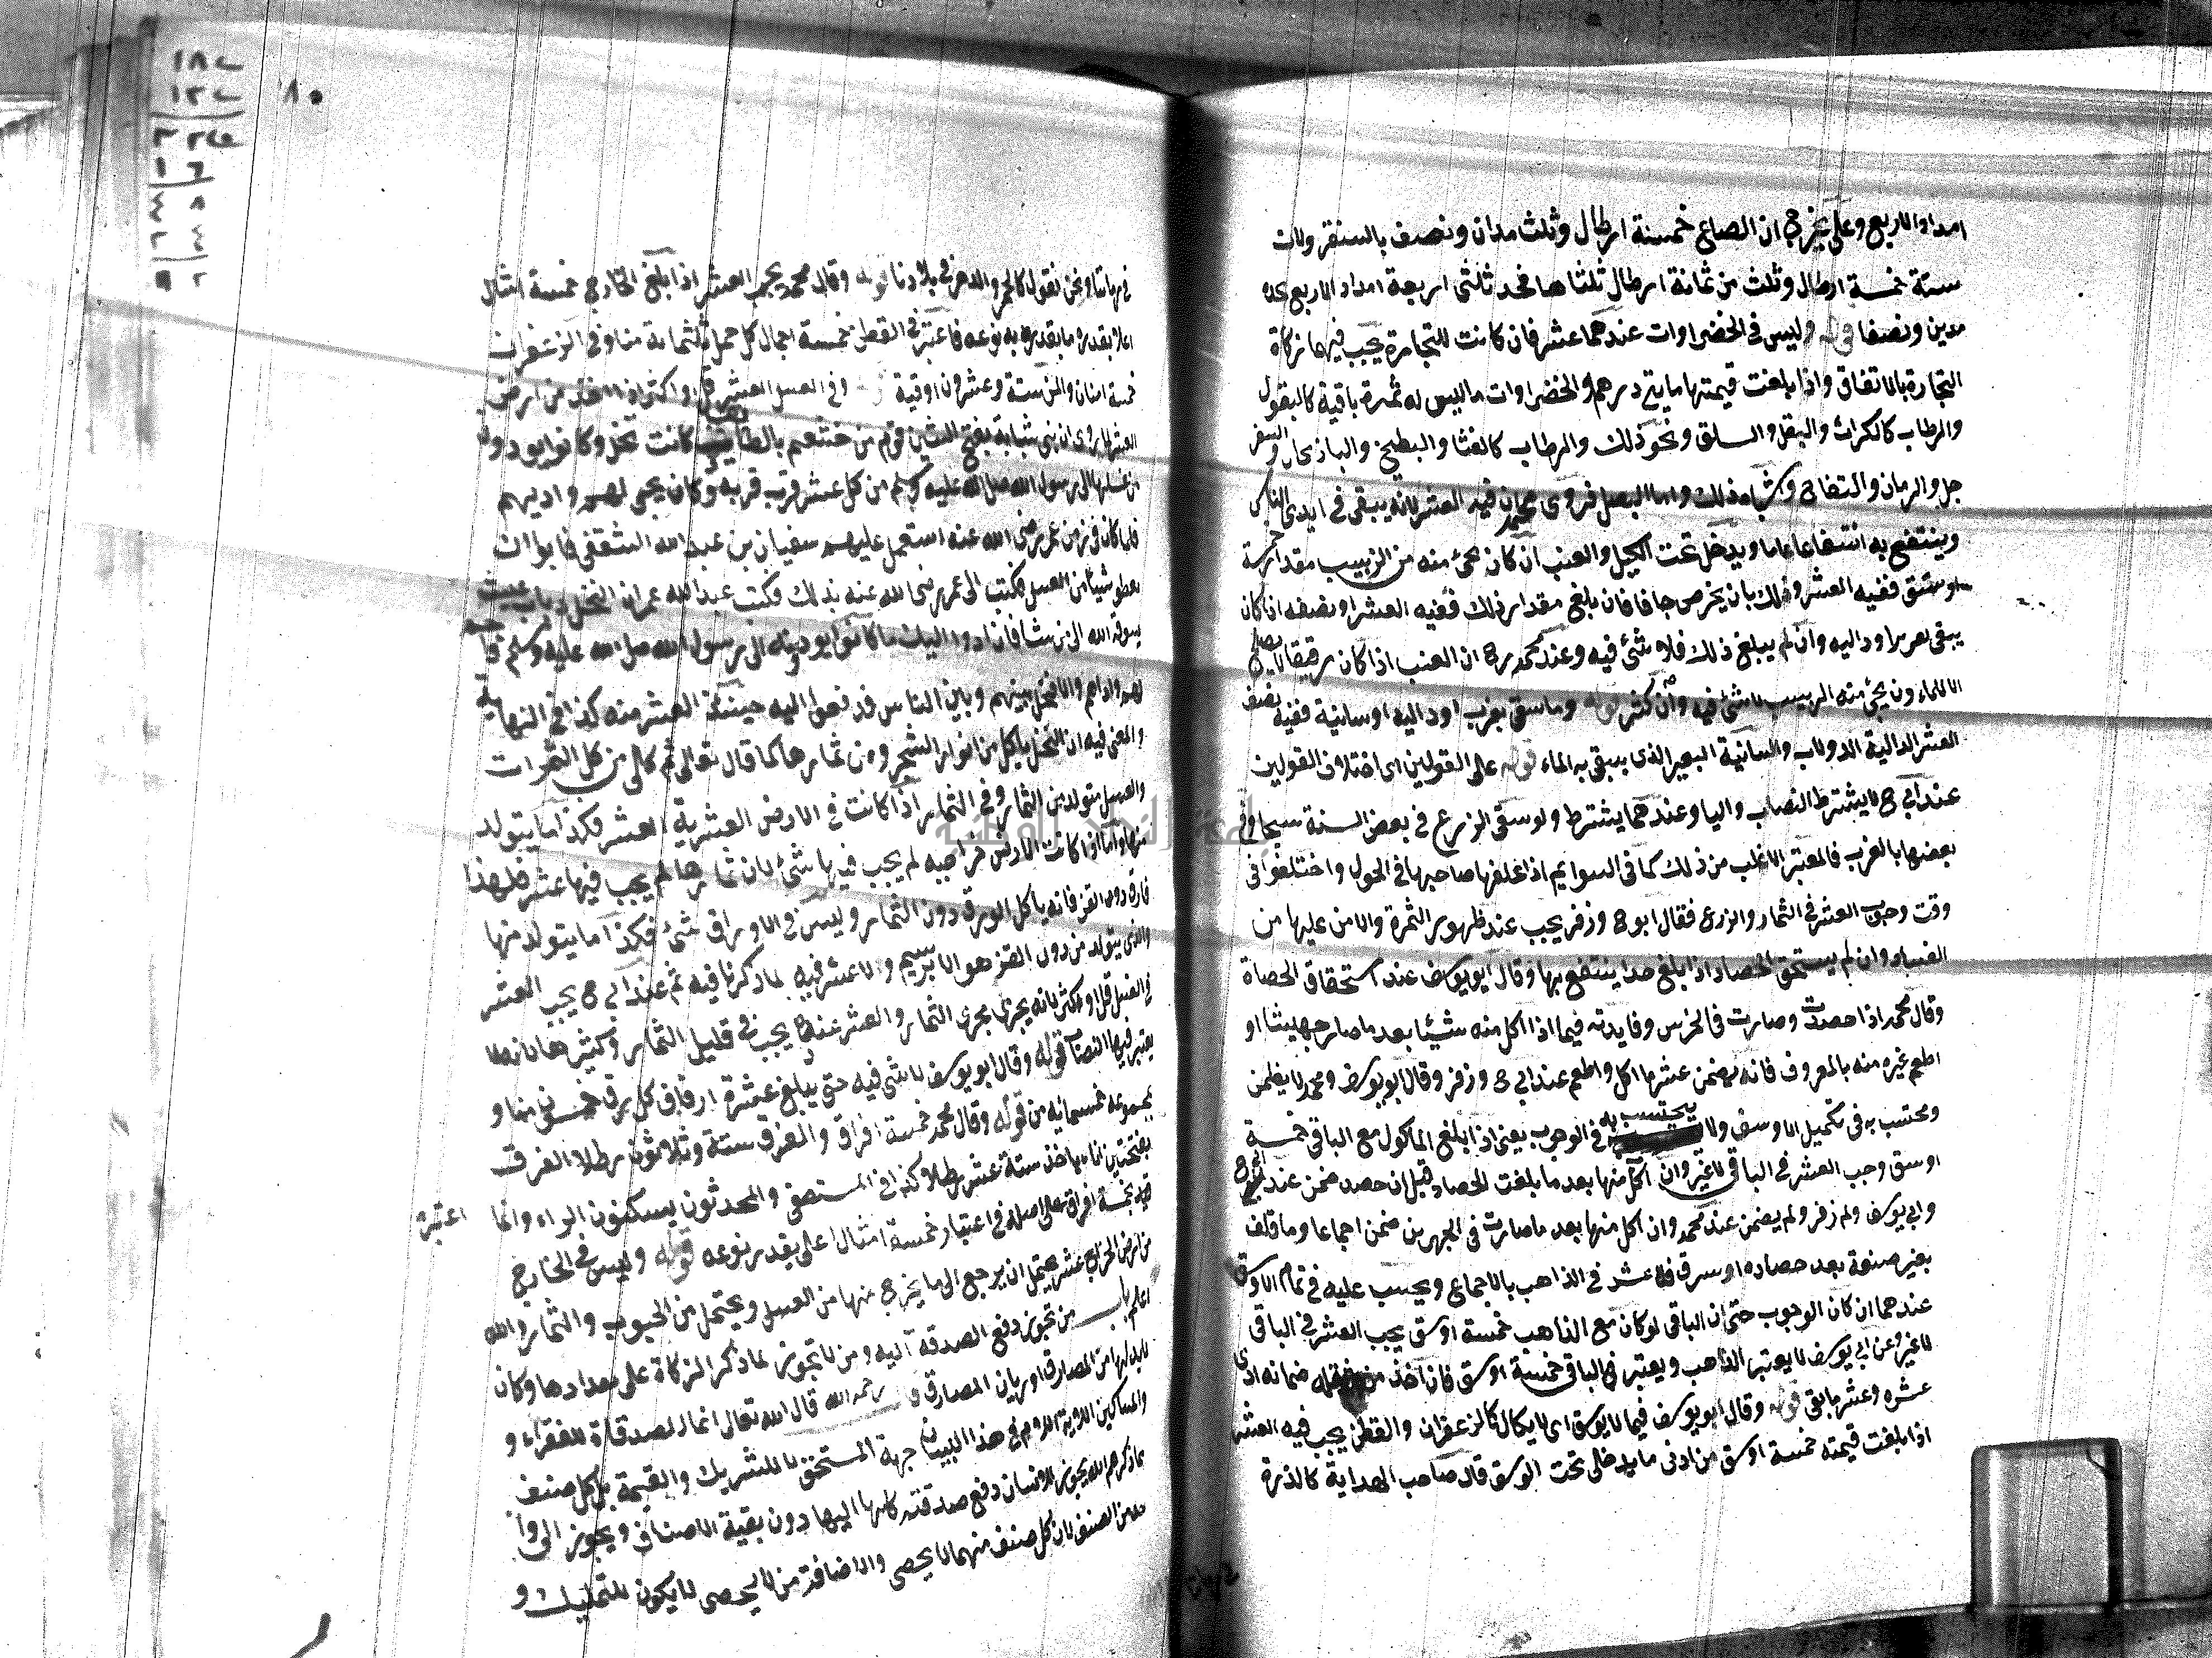 امداد الاربع وعلى تخريج ان الصاع خمسة ارطال وثلث مدان ونصف بالسنقر ولان
ستة خمسة ارطال وثلث من ثمانة ارطال ثلثاها فخد ثلثى اربعة امداد الاربع تجد
مدين ونصفا قوله وليس فى الخضراوات عندهما عشر فان كانت للتجارة يجب فيها زكاة
التجارة بالاتفاق واذا بلغت قيمتها مايتى درهم والخضراوات ما ليس له ثمرة باقية كالبقول
والرطاب كالكراث والبقل والسلق ونحو ذلك والرطاب كالقثا والبطيخ والباذنجان والسفر
جل والرمان والتفاح واشباه ذلك واما البصل فروى محمد ان فيه العشر لانه يبقى فى ايدى الناس
وينتفع به انتفاعا عاما ويدخل تحت الكيل والعنب ان كان يجئ منه من الزبيب مقدار خمسة
اوسق ففيه العشر وذلك بان يخرص جافا فان بلغ مقدار ذلك ففيه العشر او نصفه ان كان
يسقى بغرب او دالية وان لم يبلغ ذلك فلا شئ فيه وعند محمد رح ان العنب اذا كان رقيقا لا يصلح
الا للماء ون يجئ منه الزبيب لا شئ فيه وان كثر قوله وما سقى بغرب او دالية او سانية ففيه نصف
العشر الدالية الدولاب والسانية البعير الذى يسقى به الماء قوله على القولين اى اختلاف القولين
عند ابى ح لا يشترط النصاب والبا وعندهما يشترط ولو سقى الزرع فى بعض السنة سيحا وفى
بعضها بالغرب فالمعتبر الاغلب من ذلك كما فى السوايم اذا علفها صاحبها فى الحول واختلفوا فى
وقت وجوب العشر فى الثمار والزرع فقال ابو ح وزفر يجب عند ظهور الثمرة والامن عليها من
الفساد وان لم يستحق الحصاد اذا بلغ حدا ينتفع بها وقال ابو يوسف عند استحقاق الحصاد
وقال محمد اذا حصدت وصارت فى الخرس وفايدته فيما اذا اكل منه شيئا بعد ما صار جهيشا او
اطعم غيره منه بالمعروف فانه يضمن عشر ما اكل واطعم عند ابى ح وزفر وقال ابو يوسف ومحمد لا يضمن
ومحتسب به فى تكميل الاوسق ولا يحتسب به فى الوجوب يعنى اذا بلغ الماكول مع الباقى خمسة
اوسق وجب العشر فى الباقى لا غير وان اكل منها بعد ما بلغت الحصاد قبل ان حصد ضمن عند ابى ح
وابى يوسف ولم زفر ولم يضمن عند محمد وان اكل منها بعد ما صارت فى الجرين ضمن اجماعا وما تلف
بغير صنعة بعد حصاده او سرق فلا عشر فى الذاهب بالاجماع ويحسب عليه فى تمام الاوسق
عندهما ان كان الوجوب حتى ان الباقى لو كان مع الذاهب خمسة اوسق يجب العشر فى الباقى
لا غير وعن ابى يوسف لا يعتبر الذاهب ويعتبر فى الباقى خمسة اوسق فان اخذ من ضمانه ادى
عشره وعشر ما بقى قوله وقال ابو يوسف فيما لا يوسق اى لا يكال كالزعفران والقطن يجب فيه العشر
اذا بلغت قيمته خمسة اوسق من ادنى ما يدخل تحت الوسق قال صاحب الهداية كالذرة
٨٠
فى زماننا ونحن نقول كالحمر والدهر فى بلادنا قوله وقال محمد يجب العشر اذا بلغ الخارج خمسة امثال
اعلا بقدر ما يقدر به نوعه فاعتبر فى القطن خمسة احمال كل حمل ثلثماية منا وفى الزعفران
خمسة امنان والمن ستة وعشرون اوقية قوله وفى العسل العشر قل او كثر اذا اخذ من ارض
العشر لما روى ان بنى شبابة بفتح الشين قوم من خثعم بالطايف كانت نحل وكانوا يودون
من عسلها الى رسول الله صلى الله عليه وسلم من كل عشر قرب قربة وكان يحمى لهم واديهم
فلما كان فى زمن عمر رضى الله عنه استعمل عليهم سفيان بن عبد الله الثقفى فابوا ان
يعطوه شيئا من العسل فكتب الى عمر رضى الله عنه بذلك فكتب عبد الله عمر ان النحل ذباب غيث
يسوقه الله الى من شا فان ادوا اليك ما كانوا يودونه الى رسول الله صلى الله عليه وسلم فاحم
لهم واديهم والا فخل بينهم وبين الناس فدفعوا اليه حينئذ العشر منه كذا فى النهاية
والمعنى فيه ان النحل ياكل من انوار الشجر ومن ثمارها كما قال تعالى ثم كلى من كل الثمرات
والعسل متولد من الثمار وفى الثمار اذا كانت فى الارض العشرية العشر فكذا ما يتولد
منها واما اذا كانت الارض خراجيه لم يجب فيها شئ لان ثمارها لم يجب فيها عشر فلهذا
فارق دود القز فانه ياكل الورق دون الثمار وليس فى الاوراق شئ فكذا ما يتولد منها
والذى يتولد من دود القز هو الابريسم ولا عشر فيه لما ذكرنا فيه ثم عند ابى ح يجب العشر
فى العسل قل او كثر لانه يجرى مجرى الثمار والعشر عنده يجب فى قليل الثمار وكثيرها لانه لا
يعتبر فيها النصاب قوله وقال ابو يوسف لا شئ فيه حتى يبلغ عشرة ازقاق كل زق خمسون منا و
مجموعه خمسمائه من قوله وقال محمد خمسة افراق والفرق ستة وثلاثون رطلا الفرق
بفتحتين اناء ياخذ ستة عشر رطلا كذا فى المستصفى والمحدثون يسكنون الراء وانما اعتبر
فيه خمسة افراق على اصله فى اعتبار خمسة امثال اعلى بقدر نوعه قوله وليس فى الخارج
من ارض الخراج عشر يحتمل ان يرجع الى ما يخرج منها من العسل ويحتمل من الحبوب والثمار والله
اعلم باب من تجوز دفع الصدقه اليه ومن لا تجوز لما ذكر الزكاة على تعدادها وكان
لابد لها من المصارف اورد بيان المصارف قال رحمه الله قال الله تعالى انما الصدقاة للفقراء و
والمساكين الاية اللام فى هذا لبيان جهة المستحق لا للتشريك والقيمة بل كل صنف
مما ذكرهم الله يجوز للانسان دفع صدقته كلها اليها دون بقية الاصناف ويجوز الى وا
حد من الصنف لان كل صنف منهما لا يحصى والاضافة من لا يحصى لا يكون للتمليك و